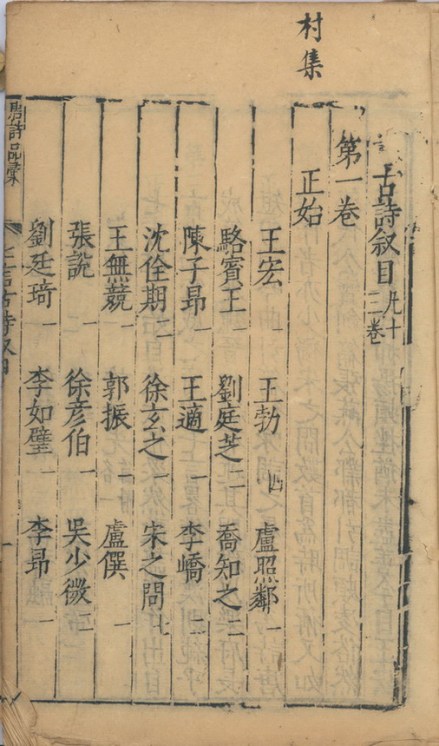 村集
言古詩叙目凡十三卷
第一卷
正始
王宏一 王勃四 盧照鄰一
駱賓王一 劉庭芝二 喬知之二
陳子昂一 王適一 李嶠二
沈佺期一 徐玄之一 宋之問七
王無競一 郭振一 盧僎一
張說二 徐彥伯一 吳少微二
劉廷琦一 李如璧一 李昂一
唐詩品彙
七言古詩叙目